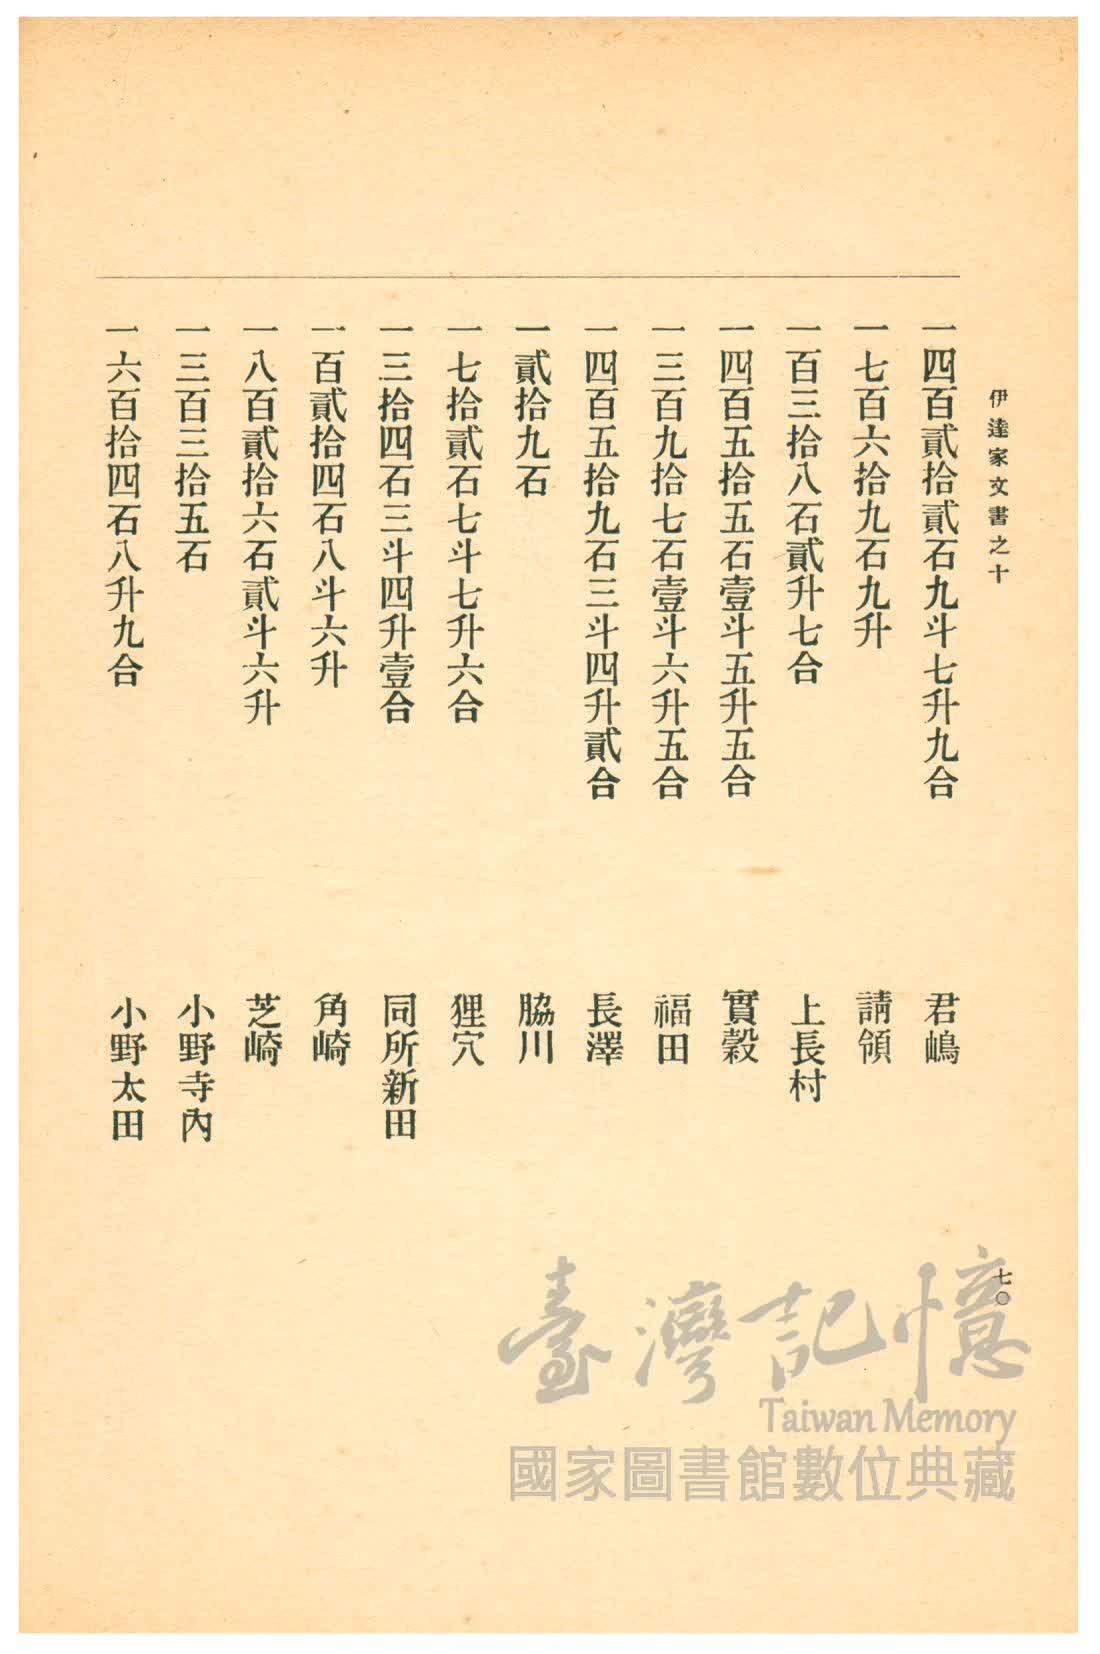 伊達家文書之十
一四百貳拾貳石九斗七升九合　君嶋
一七百六拾九石九升　請領
一百三拾八石貳升七合　上長村
一四百五拾五石壹斗五升五合　實穀
一三百九拾七石壹斗六升五合　福田
一四百五拾九石三斗四升貳合　長澤
一貳拾九石　脇川
一七拾貳石七斗七升六合　狸穴
一三拾四石三斗四升壹合　同所新田
一百貳拾四石八斗六升　角崎
一八百貳拾六石貳斗六升　芝崎
一三百三拾五石　小野寺內
一六百拾四石八升九合　小野太田
七〇
臺灣記憶
Taiwan Memory
國家圖書館數位典藏